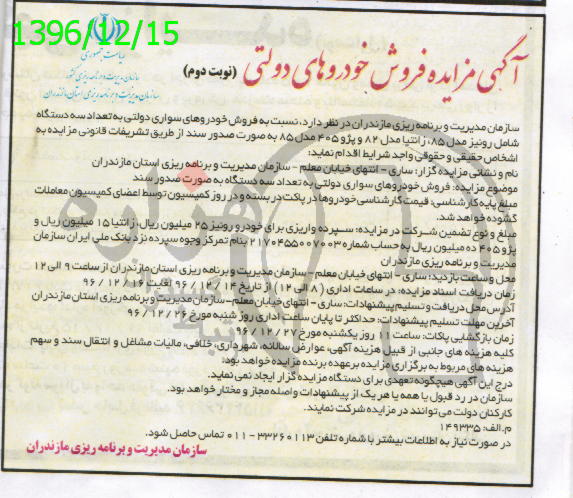 1396/12/15
ریاست جمهوری
سازمان مدیریت و برنامه ریزی کشور
سازمان مدیریت و برنامه ریزی استان مازندران
آگهی مزایده فروش خودروهای دولتی (نوبت دوم)
سازمان مدیریت و برنامه ریزی مازندران در نظر دارد، نسبت به فروش خودروهای سواری دولتی به تعداد سه دستگاه
شامل رونیز مدل ۸۵، زانتیا مدل ۸۲ و پژو ۴۰۵ مدل ۸۵ به صورت صدور سند از طریق تشریفات قانونی مزایده به
اشخاص حقیقی و حقوقی واجد شرایط اقدام نماید:
نام و نشانی مزایده گزار: ساری - انتهای خیابان معلم - سازمان مدیریت و برنامه ریزی استان مازندران
موضوع مزایده: فروش خودروهای سواری دولتی به تعداد سه دستگاه به صورت صدور سند
مبلغ پایه کارشناسی: قیمت کارشناسی خودروها در پاکت در بسته و در روز کمیسیون توسط اعضای کمیسیون معاملات
گشوده خواهد شد.
مبلغ و نوع تضمین شرکت در مزایده: سپرده واریزی برای خودرو رونیز ۲۵ میلیون ریال، زانتیا ۱۵ میلیون ریال و
پژو ۴۰۵ ده میلیون ریال به حساب شماره ۲۱۷۰۴۵۵۰۰۷۰۰۳ بنام تمرکز وجوه سپرده نزد بانک ملی ایران سازمان
مدیریت و برنامه ریزی مازندران
محل و ساعت بازدید: ساری - انتهای خیابان معلم - سازمان مدیریت و برنامه ریزی استان مازندران از ساعت ۹ الی ۱۲
زمان دریافت اسناد مزایده: در ساعات اداری (۸ الی ۱۲) از تاریخ ۹۶/۱۲/۱۴ لغایت ۹۶/۱۲/۱۶
آدرس محل دریافت و تسلیم پیشنهادات: ساری - انتهای خیابان معلم - سازمان مدیریت و برنامه ریزی استان مازندران
آخرین مهلت تسلیم پیشنهادات: حداکثر تا پایان ساعت اداری روز شنبه مورخ ۹۶/۱۲/۲۶
زمان بازگشایی پاکات: ساعت ۱۱ روز یکشنبه مورخ ۹۶/۱۲/۲۷
کلیه هزینه های جانبی از قبیل هزینه آگهی، عوارض سالانه، شهرداری، خلافی، مالیات مشاغل و انتقال سند و سهم
هزینه های مربوط به برگزاری مزایده بر عهده برنده مزایده خواهد بود.
درج این آگهی هیچگونه تعهدی برای دستگاه مزایده گزار ایجاد نمی نماید.
سازمان در رد قبول یا همه یا هر یک از پیشنهادات واصله مجاز و مختار خواهد بود.
کارکنان دولت می توانند در مزایده شرکت نمایند.
م.الف: ۱۴۹۳۳۵
در صورت نیاز به اطلاعات بیشتر با شماره تلفن ۳۳۲۶۰۱۱۳-۰۱۱ تماس حاصل شود.
سازمان مدیریت و برنامه ریزی مازندران